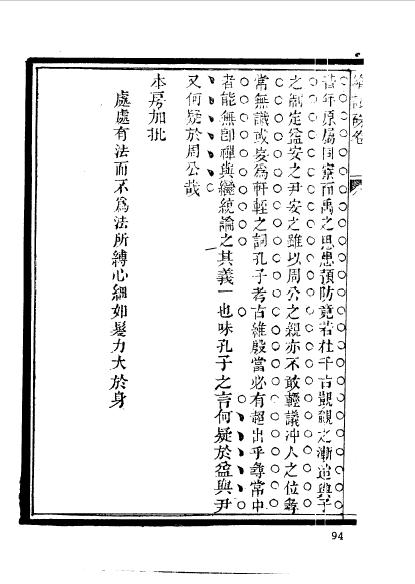 昔年原屬同寀而禹之思患預防竟若杜千古覬覦之漸迨與子
之制定益安之尹安之雖以周公之親亦不敢輕議冲人之位尋
常無識或妄為軒輊之詞孔子考古維殷當必有超出乎尋常中
者能無卽禪與繼統論之其義一也味孔子之言何疑於益與尹
又何疑於周公哉
本房加批
處處有法而不為法所縛心細如髮力大於身
94